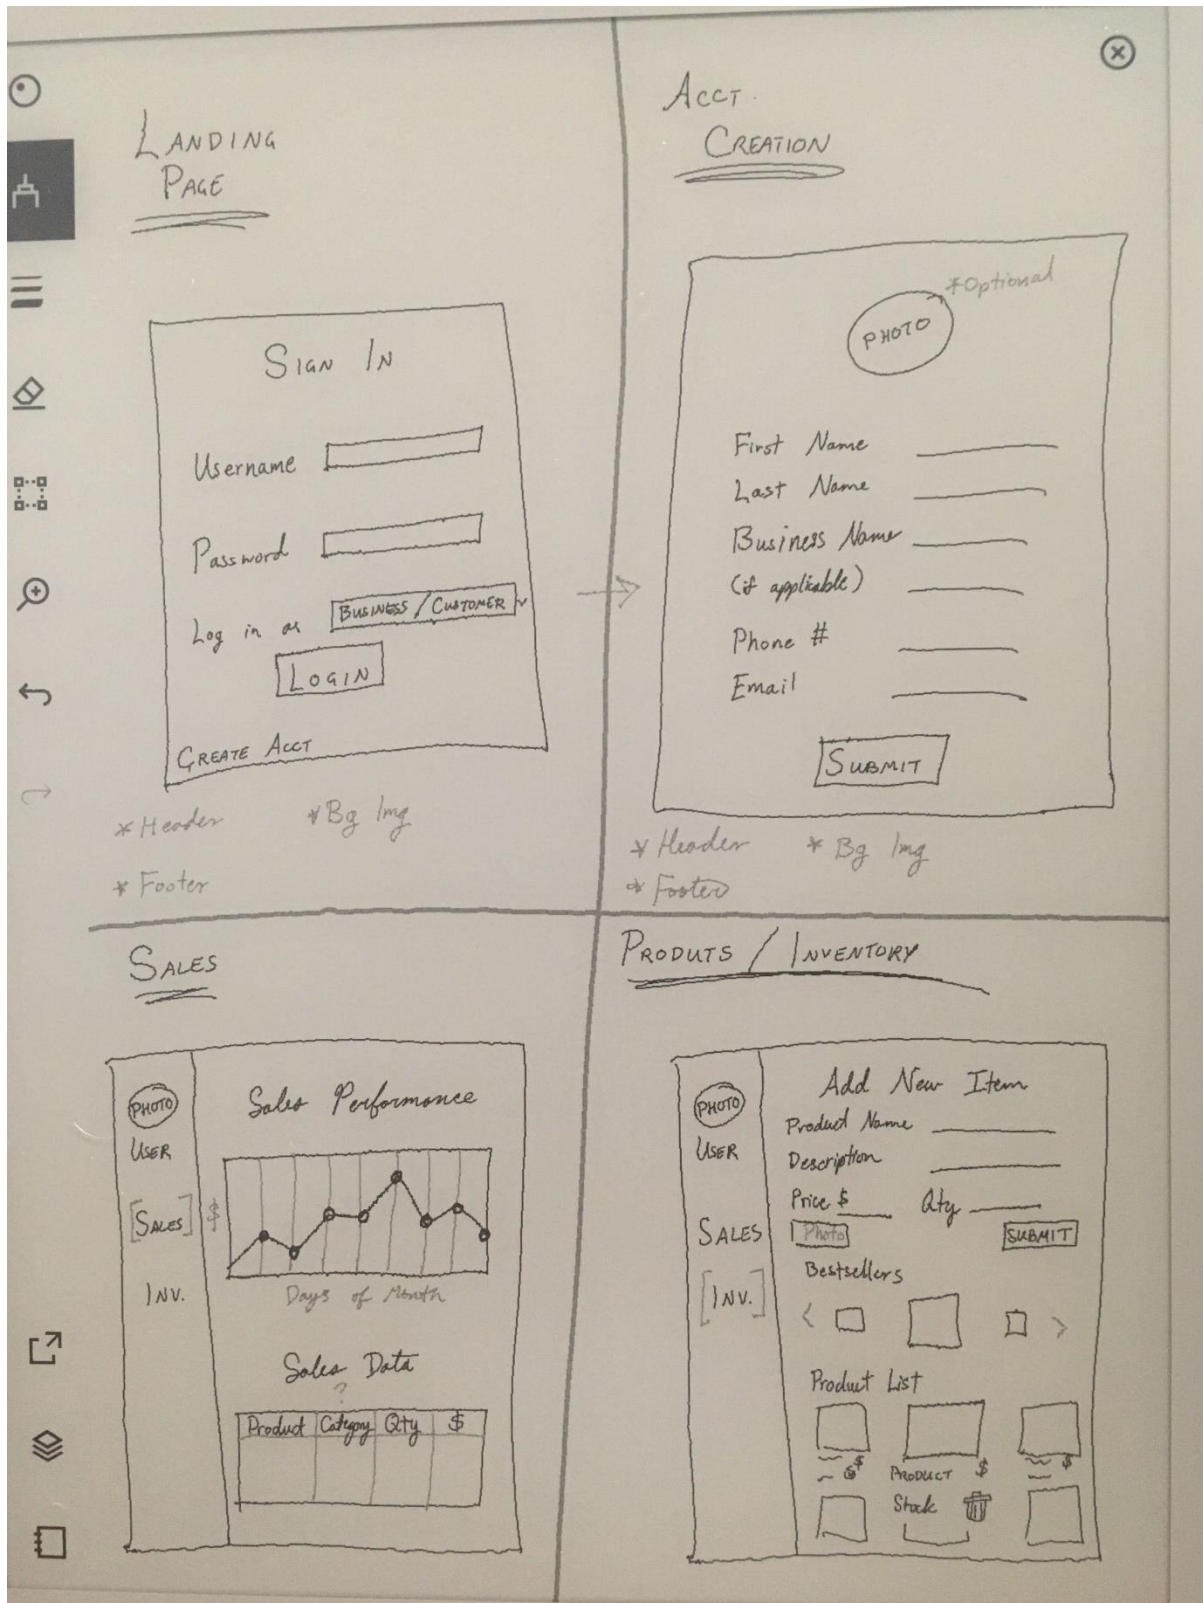 LANDING
PAGE
SIGN IN
Username
Password
Log in as BUSINESS / CUSTOMER
LOGIN
CREATE ACCT
* Header * Bg Img
* Footer
ACCT.
CREATION
*Optional
PHOTO
First Name
Last Name
Business Name
(if applicable)
Phone #
Email
SUBMIT
* Header * Bg Img
* Footer
SALES
PHOTO
USER
[SALES]
INV.
Sales Performance
$
Days of Month
Sales Data
?
Product Category Qty $
PRODUTS / INVENTORY
PHOTO
USER
SALES
[INV.]
Add New Item
Product Name
Description
Price $ Qty
Photo SUBMIT
Bestsellers
< >
Product List
$ PRODUCT $ $
Stock